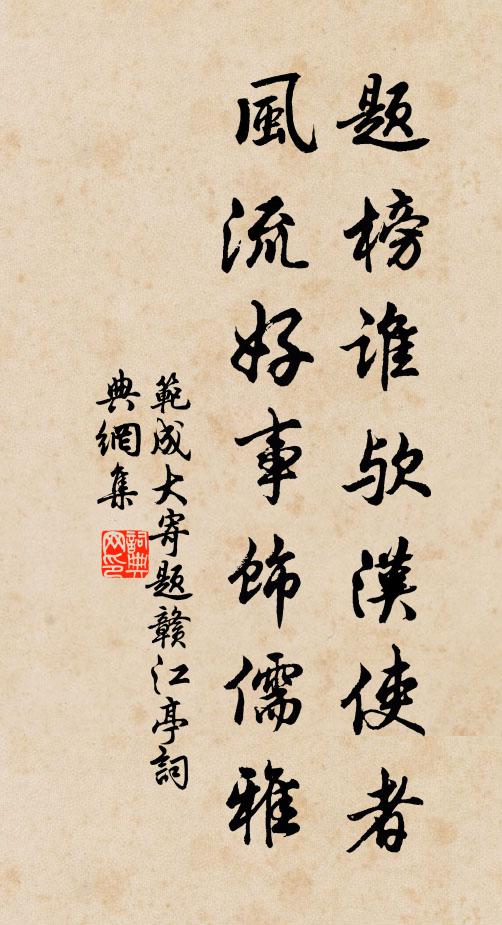 題榜誰歟漢使者
風流好事飾儒雅
範成大寄題贛江亭詞
典網集
詞典
网印